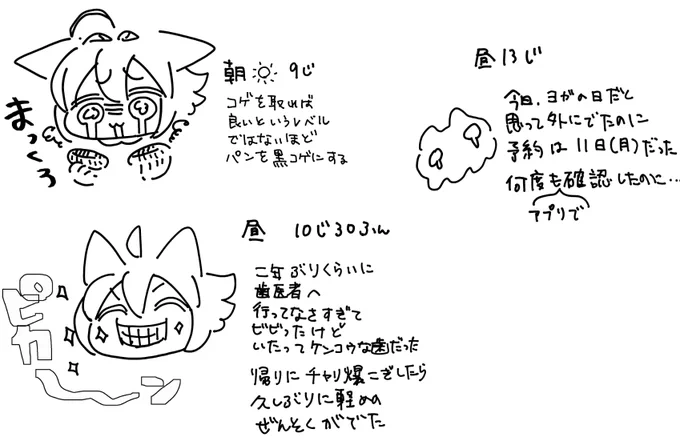 朝 9じ
まっくろ
コゲを取れば
良いというレベル
ではないほど
パンを黒コゲにする
昼 10じ30ふん
ピカーン
二年ぶりくらいに
歯医者へ
行ってなさすぎて
ビビったけど
いたってケンコウな歯だった
帰りにチャリ爆こぎしたら
久しぶりに軽めの
ぜんそくがでた
昼13じ
今日、ヨガの日だと
思って外にでたのに
予約は11日(月)だった
何度も確認したのに…
アプリで